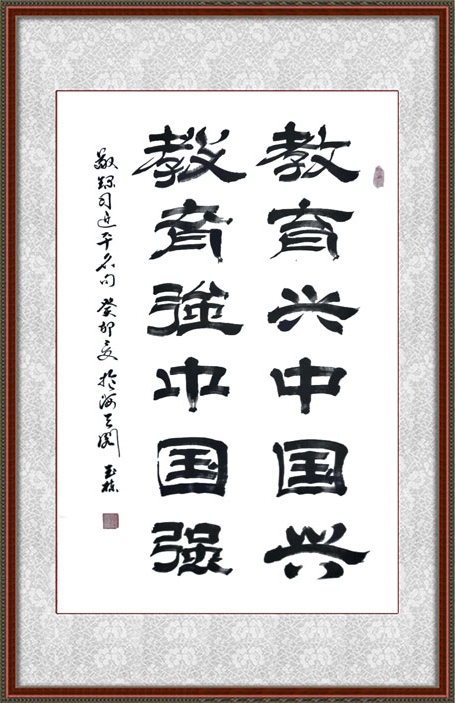 教育兴中国兴
教育強中国强
敬録习近平名句 癸卯夏 於海天阁 玉栋